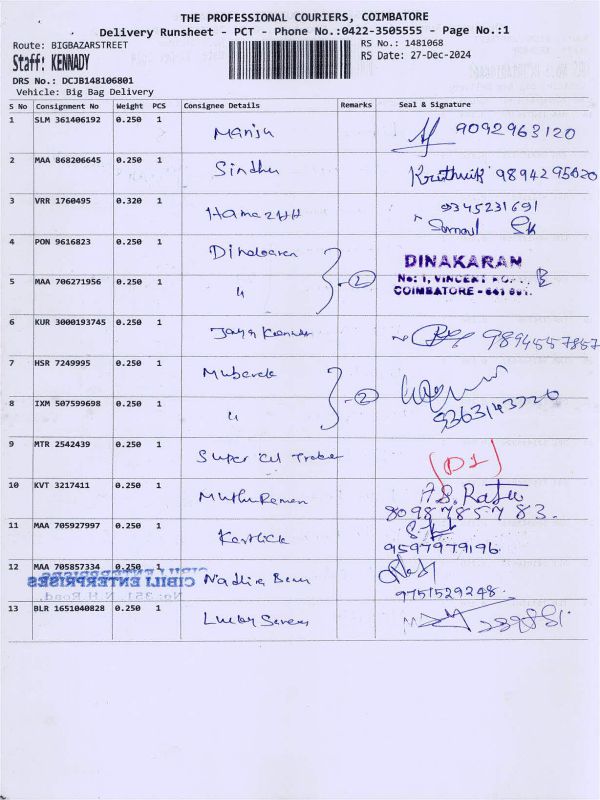 THE PROFESSIONAL COURIERS, COIMBATORE
Delivery Runsheet - PCT - Phone No.:0422-3505555 - Page No.:1
Route: BIGBAZARSTREET
RS No.: 1481068
Staff: KENNADY
RS Date: 27-Dec-2024
DRS No.: DCJB148106801
Vehicle: Big Bag Delivery
S No Consignment No Weight PCS Consignee Details Remarks Seal & Signature
1 SLM 361406192 0.250 1 Manju 9092963120
2 MAA 868206645 0.250 1 Sindhu Kruthvik 9894295020
3 VRR 1760495 0.320 1 9345231691
4 PON 9616823 0.250 1 Dinakaran DINAKARAN
No: 1, VINCENT
5 MAA 706271956 0.250 1 " 2 COIMBATORE - 641 001.
6 KUR 3000193745 0.250 1 Jaya Kannan 9894557857
7 HSR 7249995 0.250 1 Mubarak
8 IXM 507599698 0.250 1 " 2 9363143720
9 MTR 2542439 0.250 1 Super (D1)
10 KVT 3217411 0.250 1 MuthuRaman
8098785783.
11 MAA 705927997 0.250 1 Karthick
9597979196
12 MAA 705857334 0.250 1 Nadira
CIBILI ENTERPRISES
9751529248.
13 BLR 1651040828 0.250 1